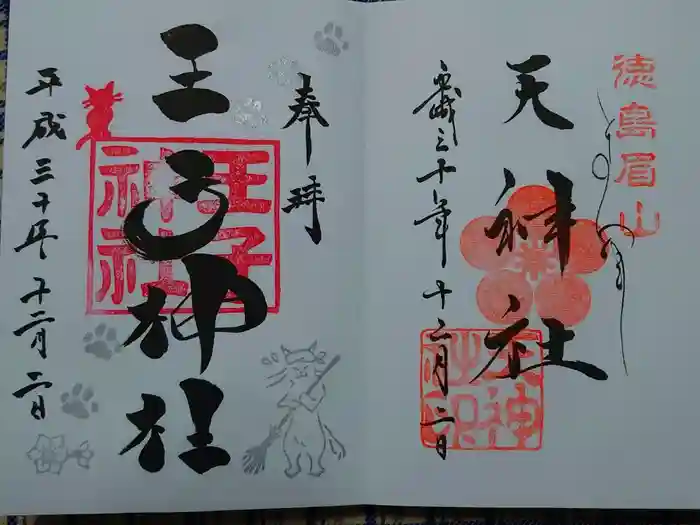 徳島眉山
天神社
天神
社印
平成三十年十二月二日
奉拝
王子神社
王子
神社
平成三十年十二月二日